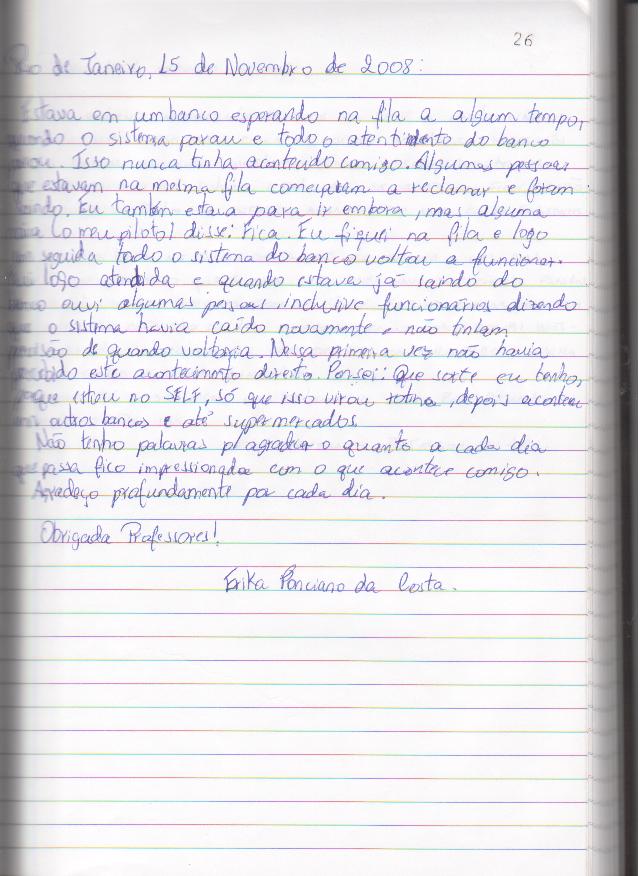 26
Rio de Janeiro, 15 de Novembro de 2008:
Estava em um banco esperando na fila a algum tempo,
quando o sistema parou e todo o atentimento do banco
parou. Isso nunca tinha acontecido comigo. Algumas pessoas
que estavam na mesma fila começaram a reclamar e foram
saindo. Eu também estava para ir embora, mas, alguma
coisa (o meu piloto) disse: Fica. Eu fiquei na fila e logo
em seguida todo o sistema do banco voltou a funcionar.
Fui logo atendida e quando estava já saindo do
banco ouvi algumas pessoas, inclusive funcionários dizendo
que o sistema havia caído novamente e não tinham
previsão de quando voltaria. Nessa primeira vez não havia
percebido este acontecimento direito. Pensei: Que sorte eu tenho,
porque estou no SELF, só que isso virou rotina, depois aconteceu
em outros bancos e até supermercados.
Não tenho palavras p/ agradecer o quanto a cada dia
que passa fico impressionada com o que acontece comigo.
Agradeço profundamente por cada dia.
Obrigada Professores!
Erika Ponciano da Costa.